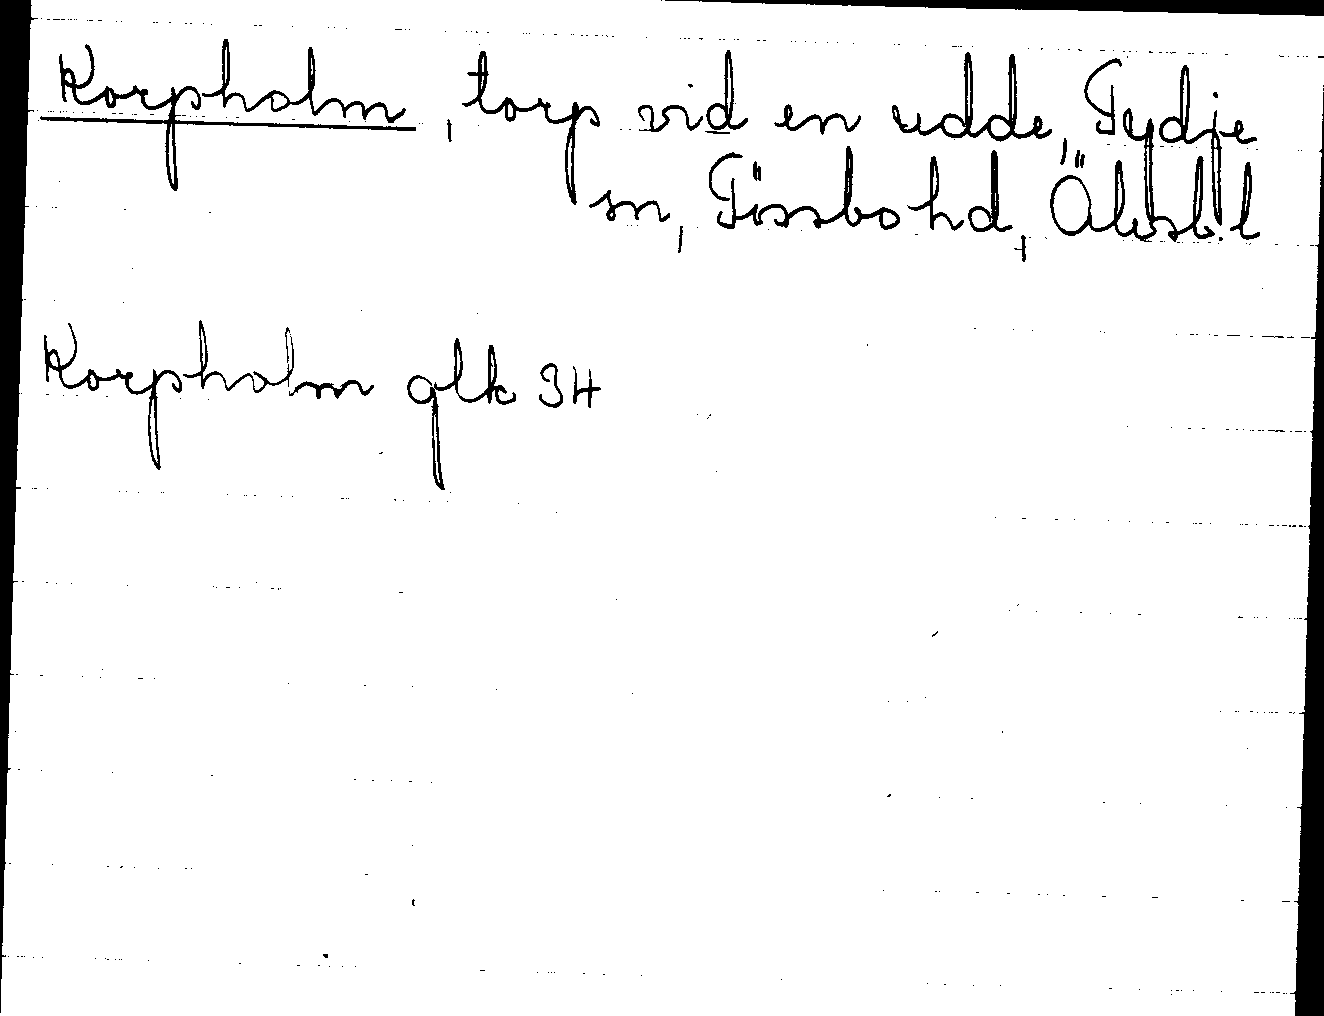 Korpholm, torp vid en udde, Tydje
sn, Tössbo hd, Älvsb.l
Korpholm glk 34